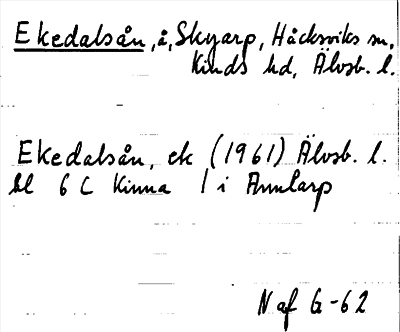 Ekedalsån, å, Skyarp, Håcksviks sn,
Kinds hd, Älvsb. l.
Ekedalsån, ek (1961) Älvsb. l.
bl 6 C Kinna 1 i Annlarp
N af G-62